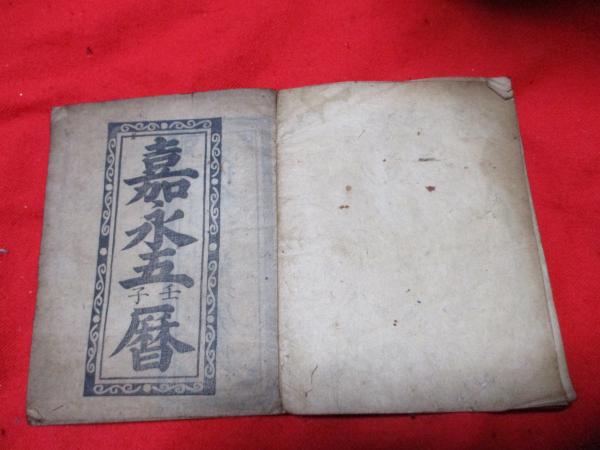 嘉永五
壬子
暦